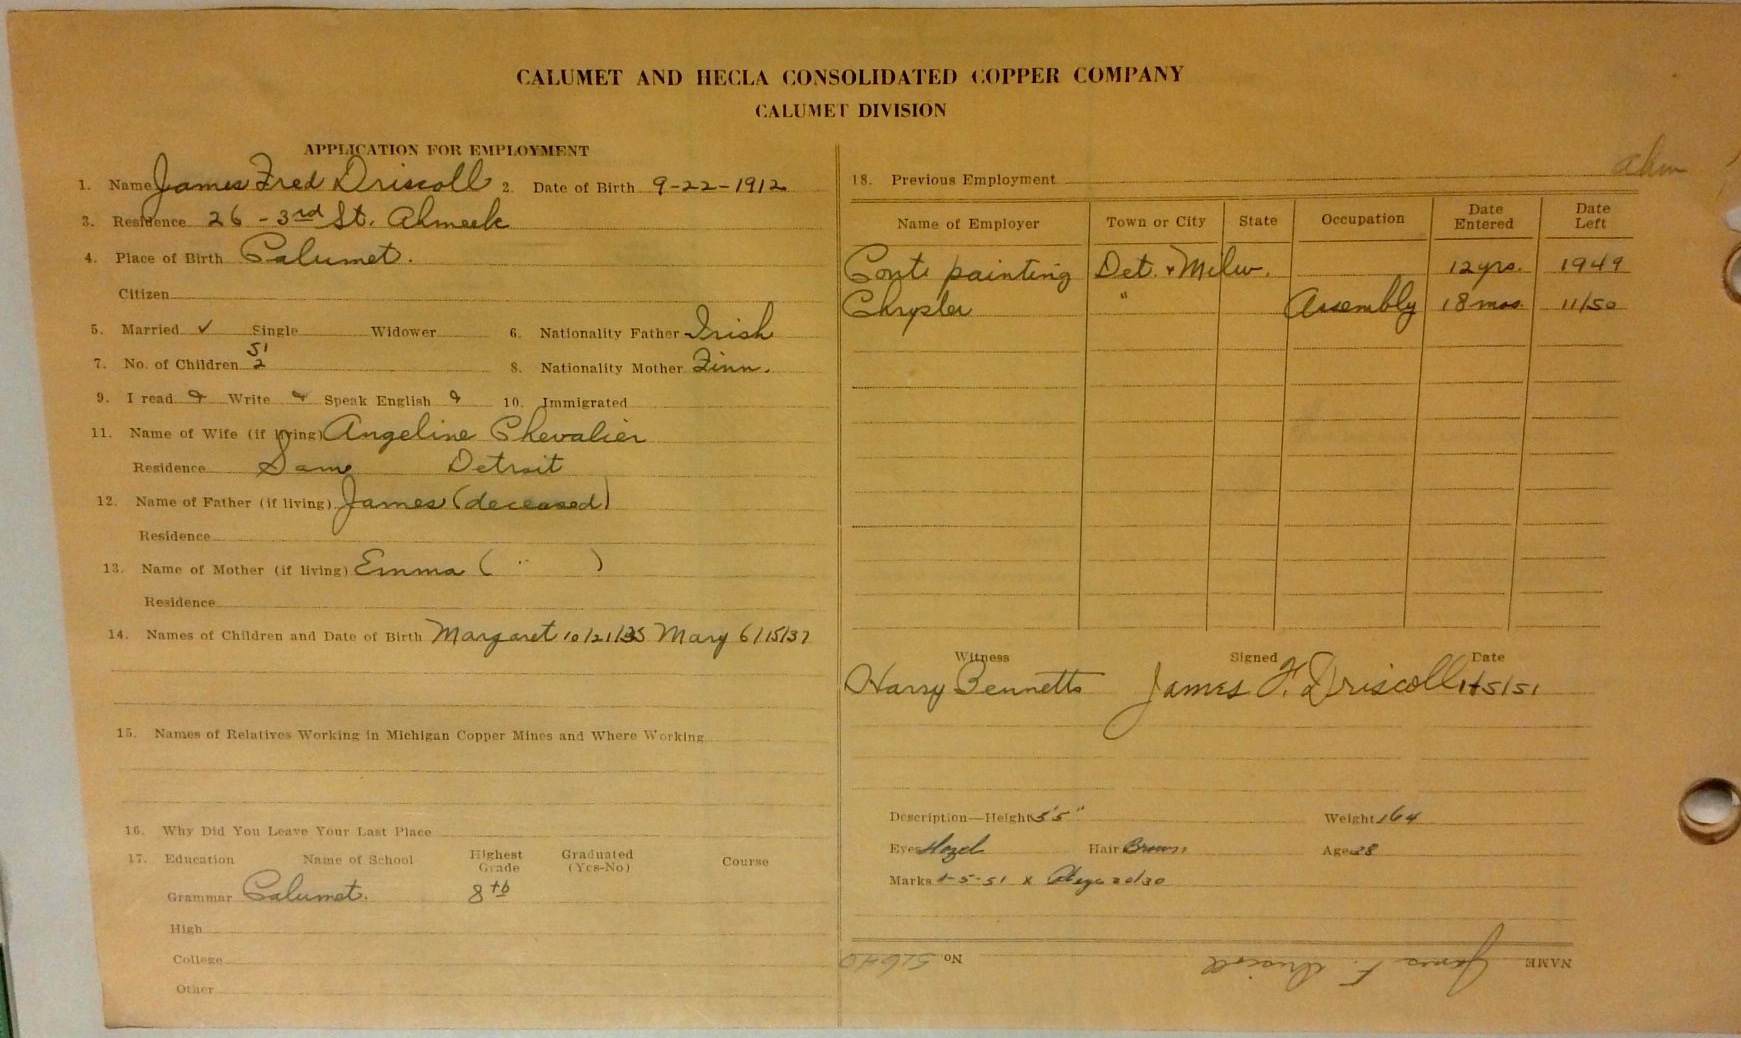 CALUMET AND HECLA CONSOLIDATED COPPER COMPANY
CALUMET DIVISION
APPLICATION FOR EMPLOYMENT
1. Name James Fred Driscoll 2. Date of Birth 9-22-1912
3. Residence 26 - 3rd St. Ahmeek
4. Place of Birth Calumet.
Citizen
5. Married ✓ Single Widower 6. Nationality Father Irish
7. No. of Children 2 8. Nationality Mother Finn.
9. I read Write Speak English 10. Immigrated
11. Name of Wife (if living) Angeline Chevalier
Residence Same Detroit
12. Name of Father (if living) James (deceased)
Residence
13. Name of Mother (if living) Emma ( " )
Residence
14. Names of Children and Date of Birth Margaret 10/21/35 Mary 6/15/37
15. Names of Relatives Working in Michigan Copper Mines and Where Working
16. Why Did You Leave Your Last Place
17. Education Name of School Highest Grade Graduated (Yes-No) Course
Grammar Calumet. 8th
High
College
Other
18. Previous Employment
Name of Employer Town or City State Occupation Date Entered Date Left
Cont. painting Det. + Milw. 12 yrs. 1949
Chrysler " Assembly 18 mos. 11/50
Witness Signed Date
Harry Bennetts James F. Driscoll 1/5/51
Description—Height 5'5" Weight 164
Eyes Hazel Hair Brown Age 38
Marks 1-5-51 x 20/30
NAME James F. Driscoll No.